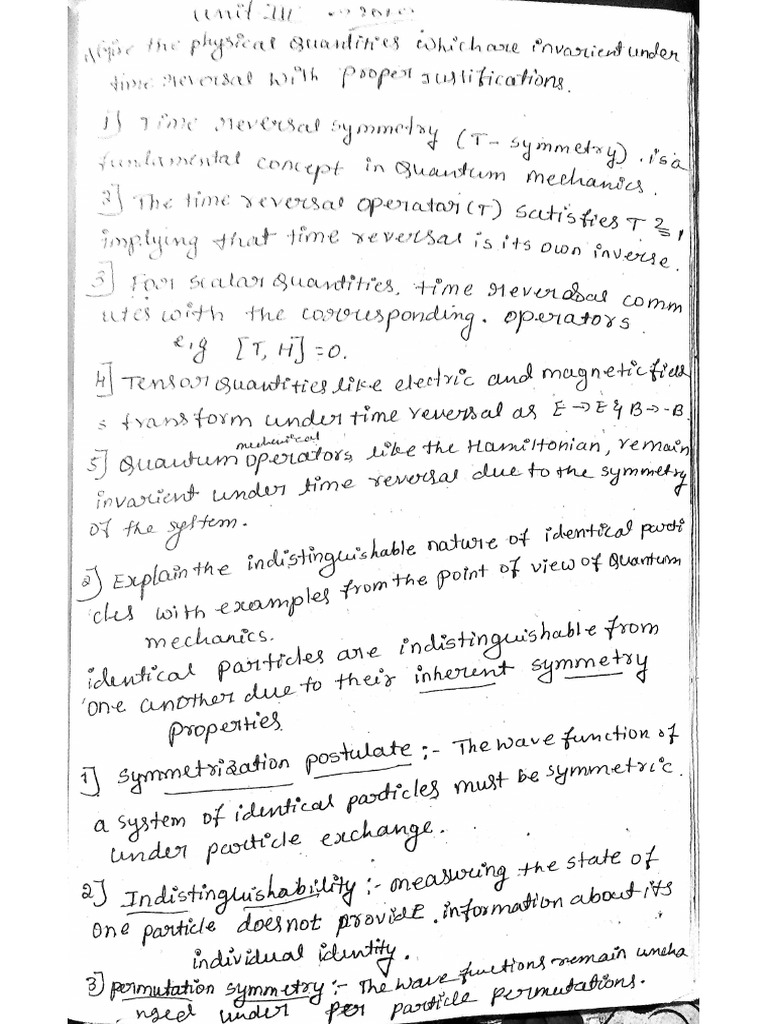 Unit III
Give the physical quantities which are invarient under
time reversal with proper justifications.
1] Time reversal symmetry (T- symmetry). is a
fundamental concept in quantum mechanics.
2] The time reversal operator (T) satisfies T 2 = 1
implying that time reversal is its own inverse.
3] For scalar quantities, time reversal comm
utes with the corresponding. operators.
e.g [T, H] = 0.
4] Tensor quantities like electric and magnetic field
s transform under time reversal as E → E & B → -B.
mechanical
5] Quantum operators, like the Hamiltonian, remain
invarient under time reversal due to the symmetry
of the system.
2] Explain the indistinguishable nature of identical parti
cles with examples from the point of view of Quantum
mechanics.
identical particles are indistinguishable from
one another due to their inherent symmetry
properties
1] Symmetrization postulate :- The wave function of
a system of identical particles must be symmetric.
under particle exchange.
2] Indistinguishability :- measuring the state of
one particle doesnot provide. information about its
individual identity.
3] permutation symmetry :- The wave functions remain uncha
nged under per particle permutations.